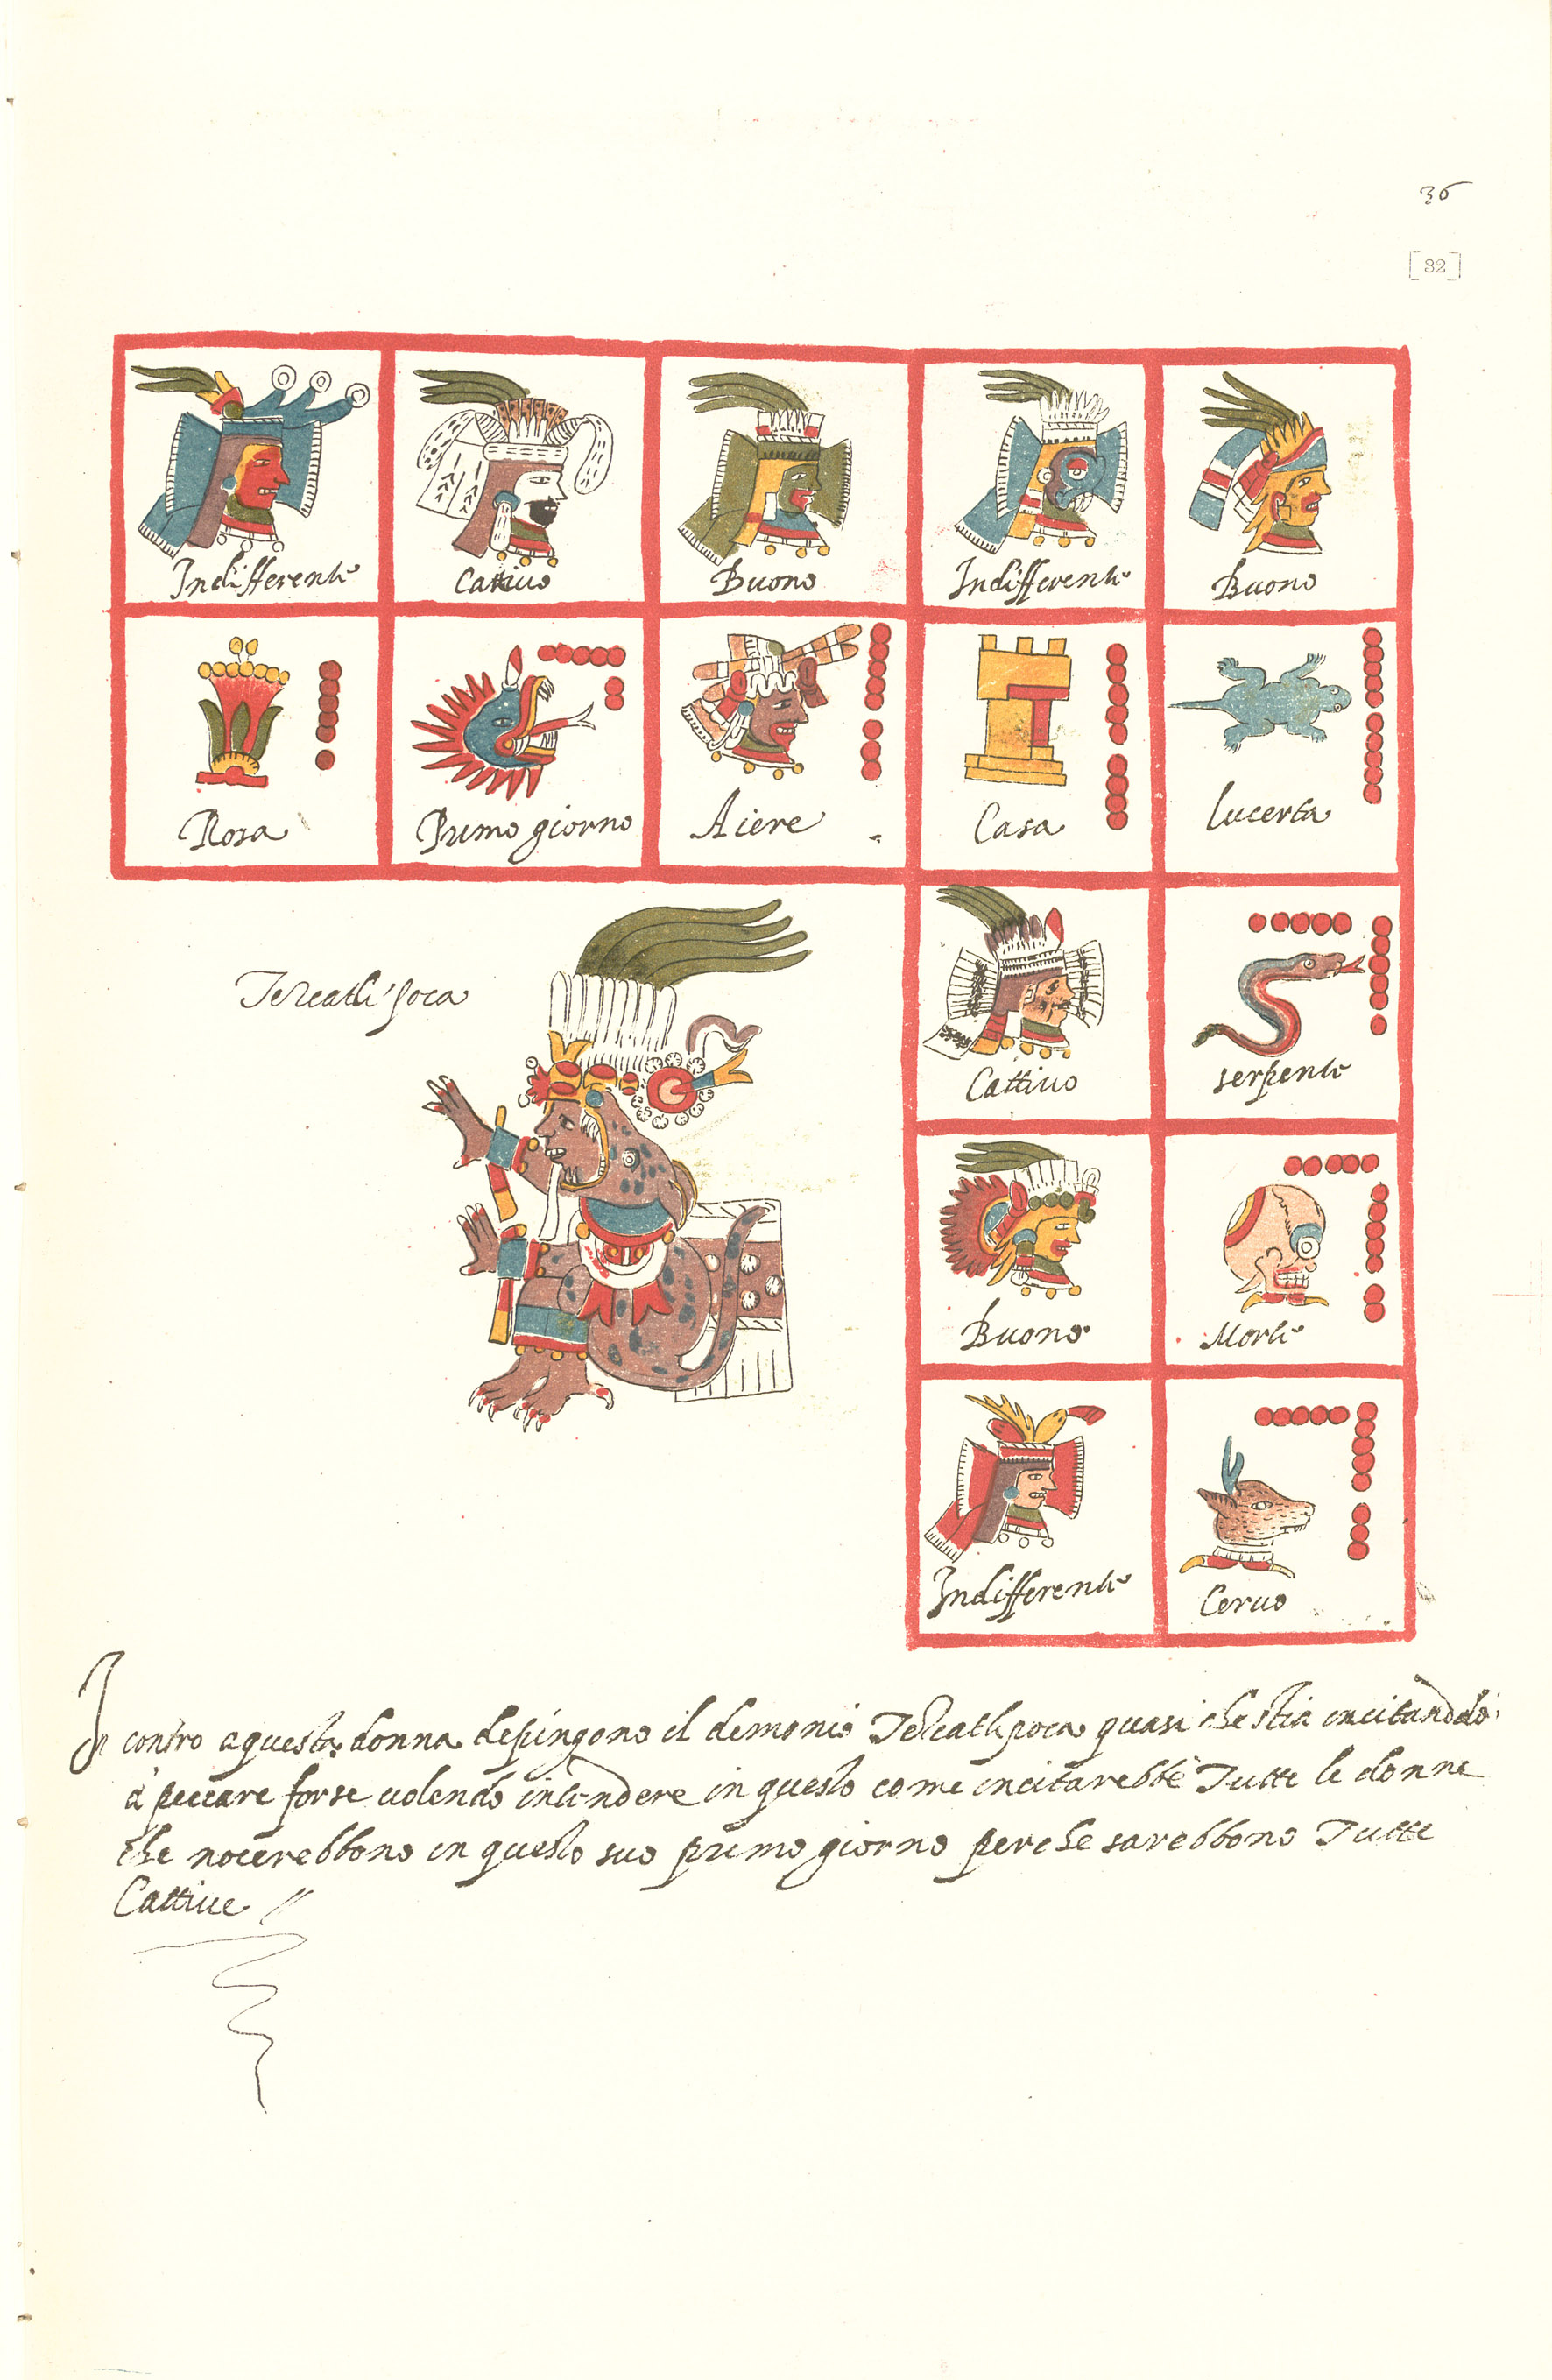 36
[32]
Indifferente Cattiuo Buono Indifferente Buono
Rosa Primo giorno Aiere Casa Lucerta
Tezcatlipoca
Cattiuo serpente
Buono Morte
Indifferente Ceruo
In contro a questa donna depingono il demonio Tezcatlipoca quasi che stia incitandolo
a peccare forse uolendo intendere in questo come incitarebbe Tutte le donne
che nocerebbono in questo suo primo giorno perche sarebbono Tutte
Cattiue //